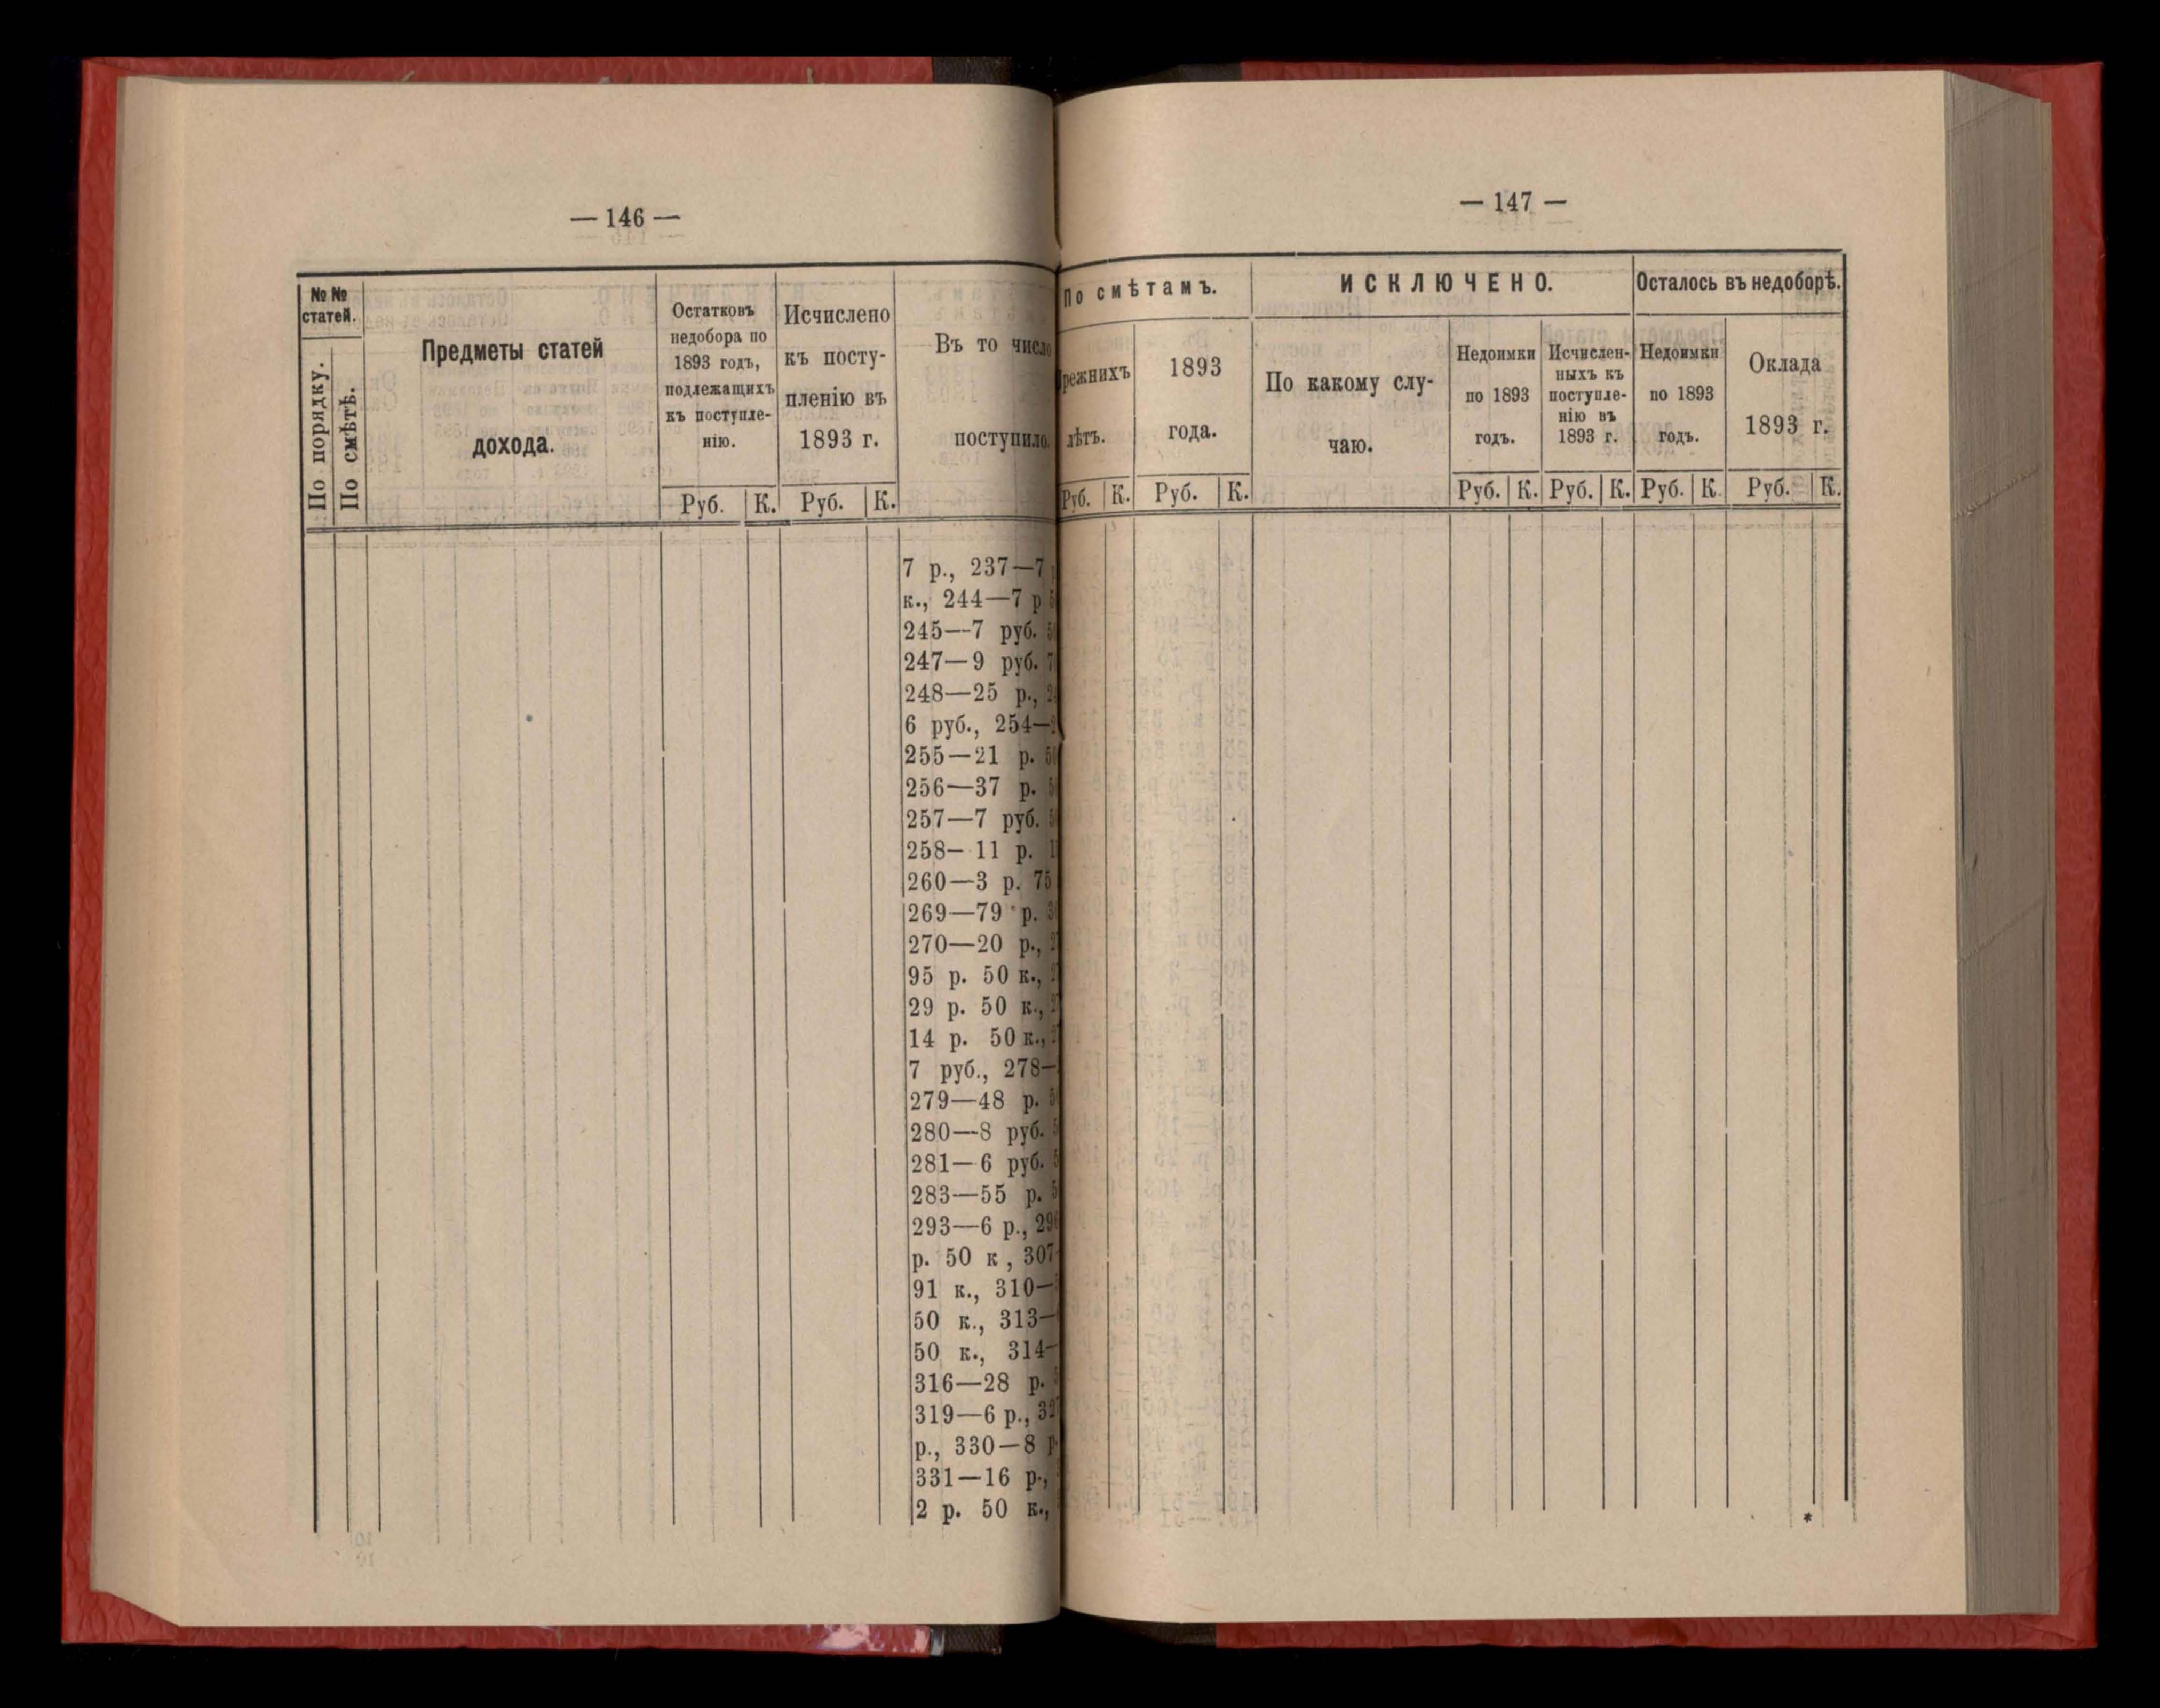 — 146 —
№ №
статей.
По порядку.
По смѣтѣ.
Предметы статей
дохода.
Остатковъ
недобора по
1893 годъ,
подлежащихъ
къ поступле-
нію.
Руб. К.
Исчислено
къ посту-
пленію въ
1893 г.
Руб. К.
Въ то число
поступило.
7 р., 237—7
к., 244—7 р
245—7 руб.
247—9 руб.
248—25 р.,
6 руб., 254—
255—21 р. 50
256—37 р.
257—7 руб.
258—11 р.
260—3 р. 75
269—79 р.
270—20 р.,
95 р. 50 к.,
29 р. 50 к.,
14 р. 50 к.,
7 руб., 278—
279—48 р.
280—8 руб.
281—6 руб.
283—55 р.
293—6 р.,
р. 50 к, 307
91 к., 310—
50 к., 313—
50 к., 314—
316—28 р.
319—6 р.,
р., 330—8 р.
331—16 р.,
2 р. 50 к.,
— 147 —
По смѣтамъ.
режнихъ
лѣтъ.
Руб. К.
1893
года.
Руб. К.
ИСКЛЮЧЕНО.
По какому слу-
чаю.
Недоимки
по 1893
годъ.
Руб. К.
Исчислен-
ныхъ къ
поступле-
нію въ
1893 г.
Руб. К.
Осталось въ недоборѣ.
Недоимки
по 1893
годъ.
Руб. К.
Оклада
1893 г.
Руб. К.
*